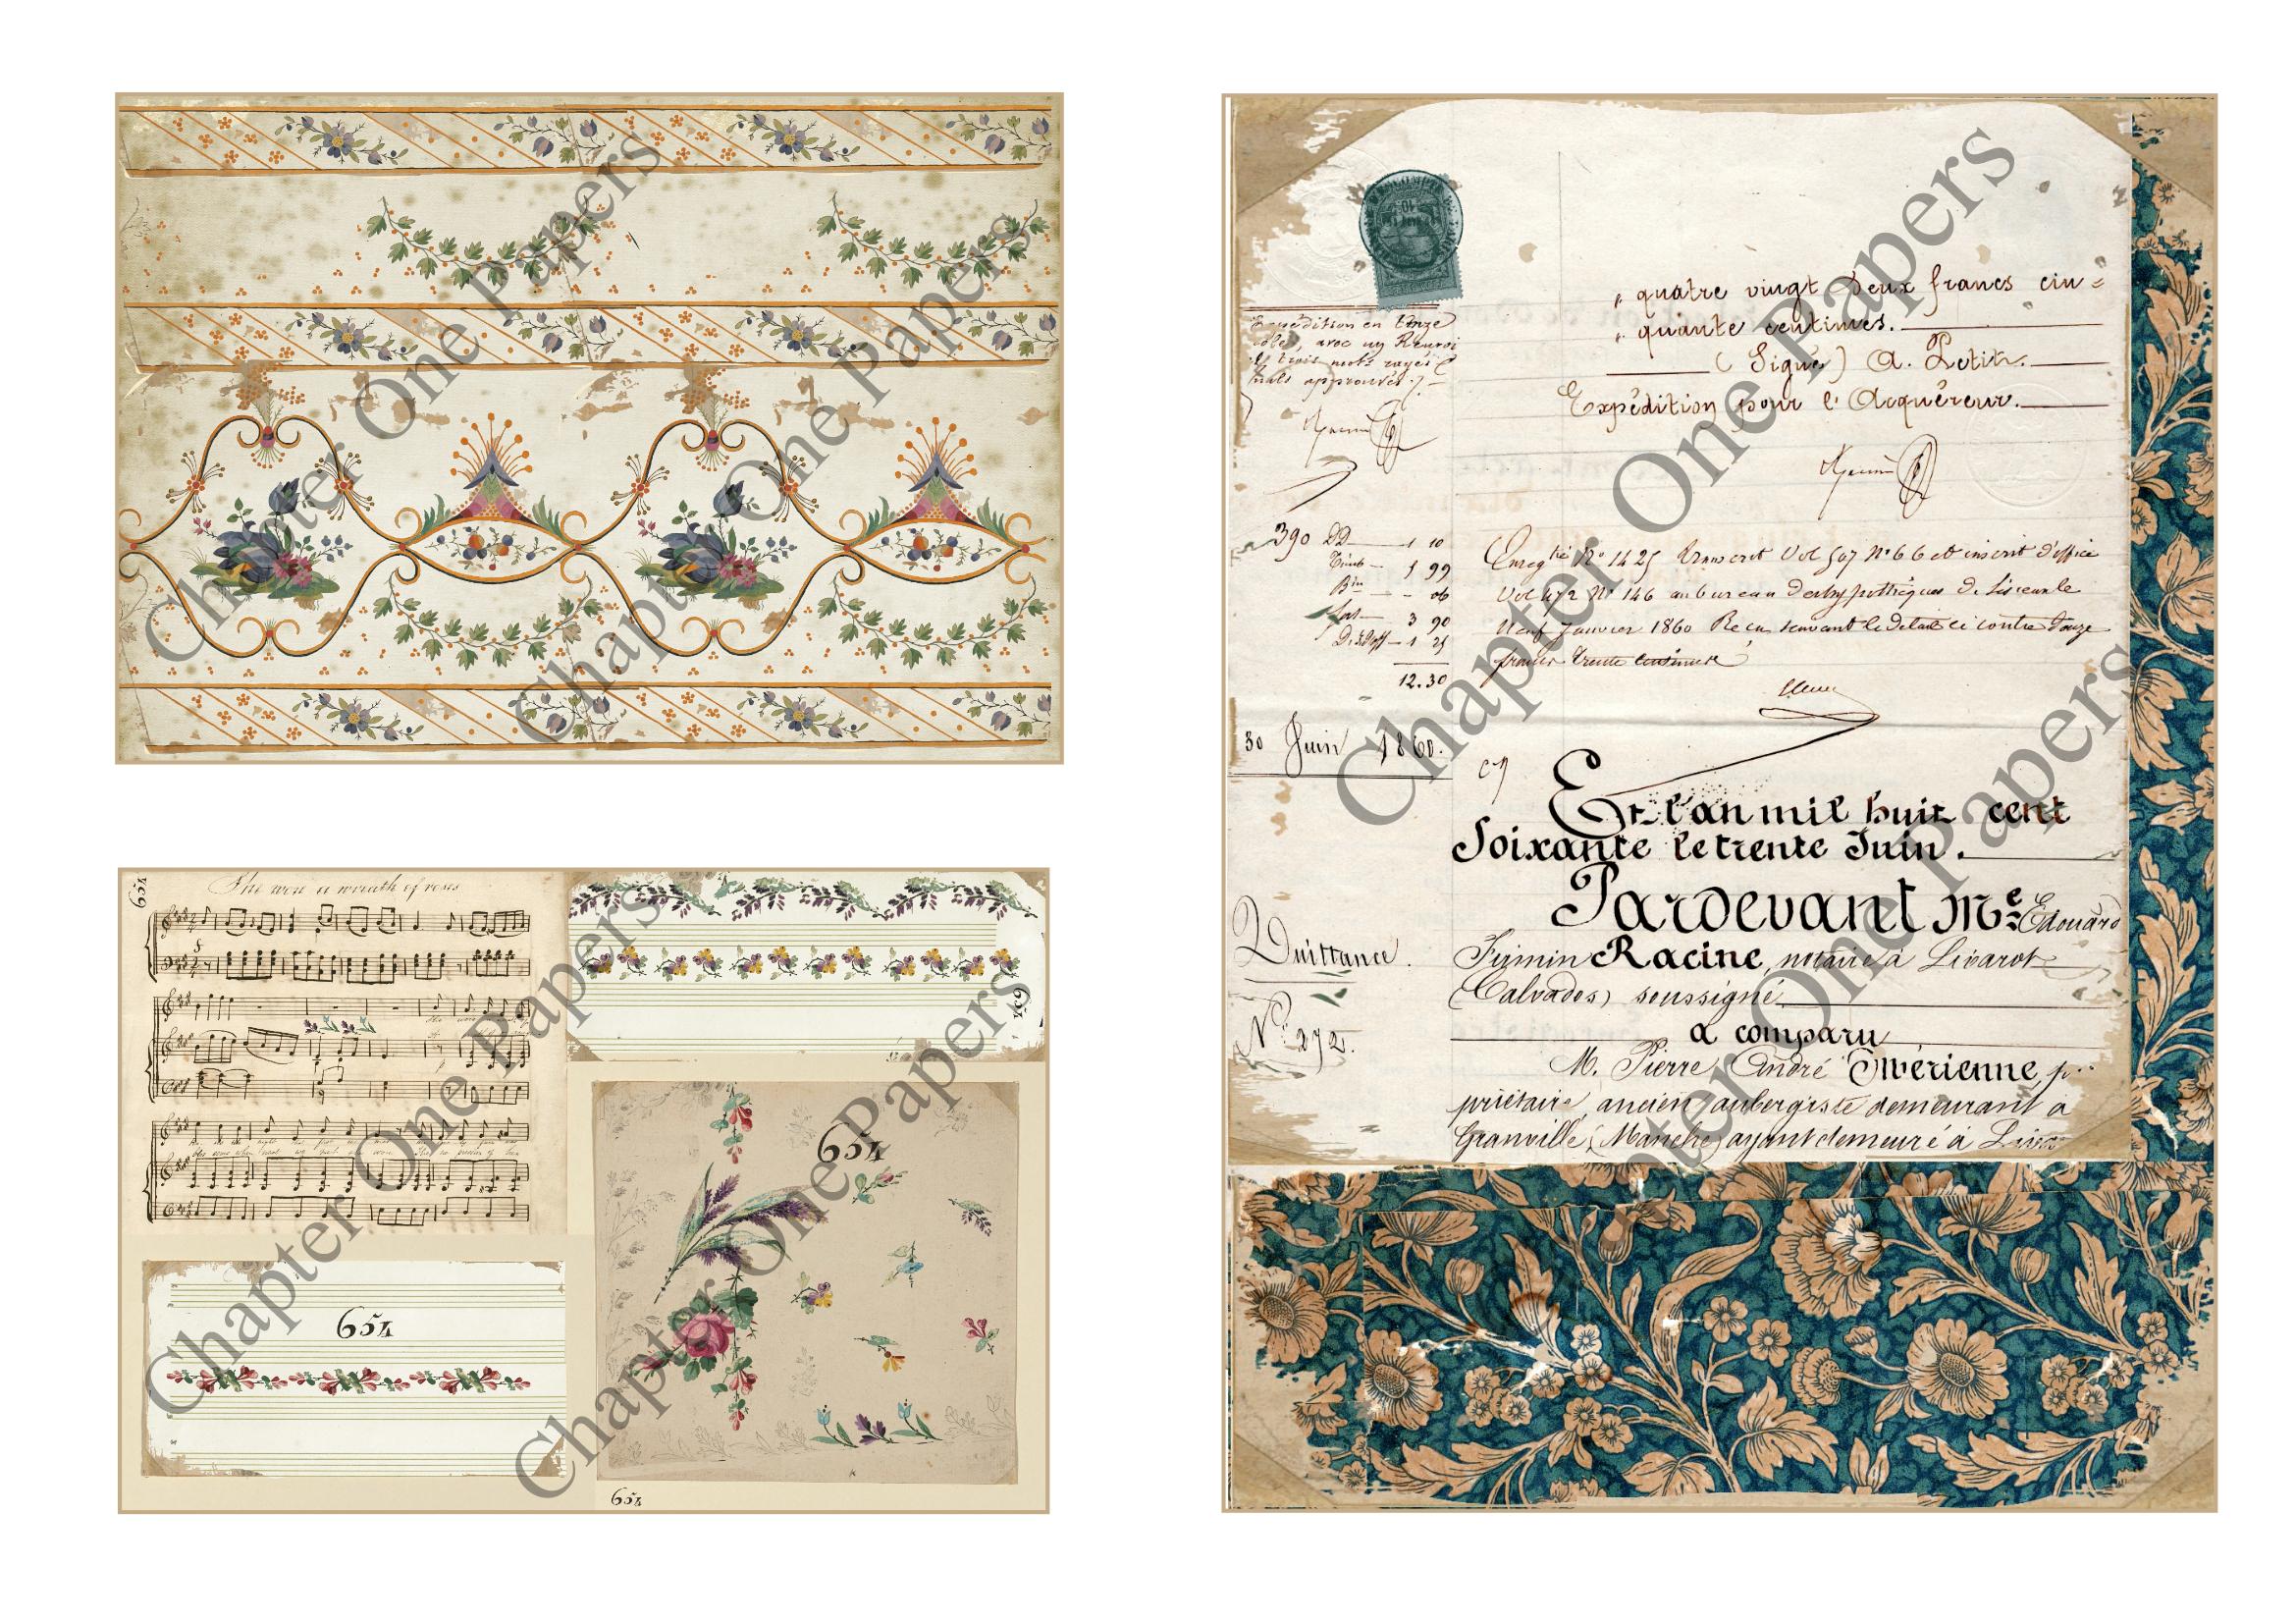 Chapter One Papers
Chapter One Papers
She wore a wreath of roses
654
654
654
654
654
Chapter One Papers
Chapter One Papers
quatre vingt deux francs cin=
quante centimes.
(Signé) A. Petit.
Expédition pour l'Acquéreur.
Expédition en onze
avec un Renvoi
trois mots rayés
nuls approuvés
390
1 10
1 99
06
3 90
1 25
12.30
Enregtré No 1425 transcrit Vol 507 No 66 et inscrit d'office
Vol 472 No 146 au bureau des hypothèques de Lisieux le
Neuf Janvier 1860 Reçu suivant le détail ci contre Douze
francs trente centimes
30 Juin 1860.
Et l'an mil huit cent
Soixante le trente Juin.
Pardevant Me Edouard
Firmin Racine, notaire à Livarot
(Calvados) soussigné
a comparu
M. Pierre André
priétaire, ancien aubergiste demeurant à
Granville (Manche) ayant demeuré à
Quittance.
No 272.
Chapter One Papers
Chapter One Papers